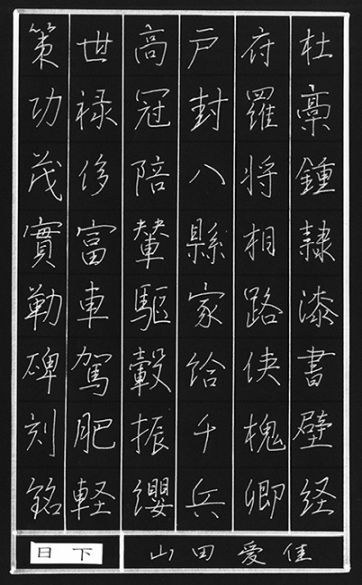 杜稾鍾隷漆書壁経
府羅将相路侠槐卿
戸封八縣家給千兵
高冠陪輦驅轂振纓
世禄侈富車駕肥軽
策功茂實勒碑刻銘
日下
山田愛佳